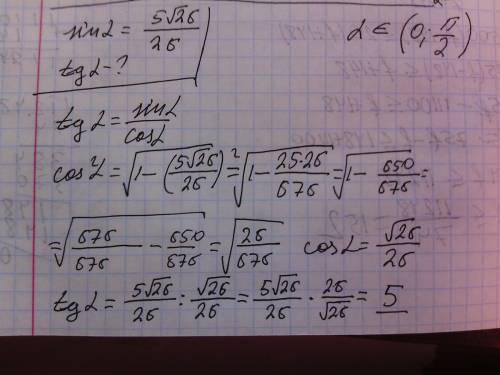 sin α = 5√26/26 α ∈ (0; π/2)
tg α - ?
tg α = sin α / cos α
cos α = √(1 - (5√26/26)²) = √(1 - 25·26/676) = √(1 - 650/676) =
= √(676/676 - 650/676) = √(26/676) cos α = √26/26
tg α = 5√26/26 : √26/26 = 5√26/26 · 26/√26 = 5